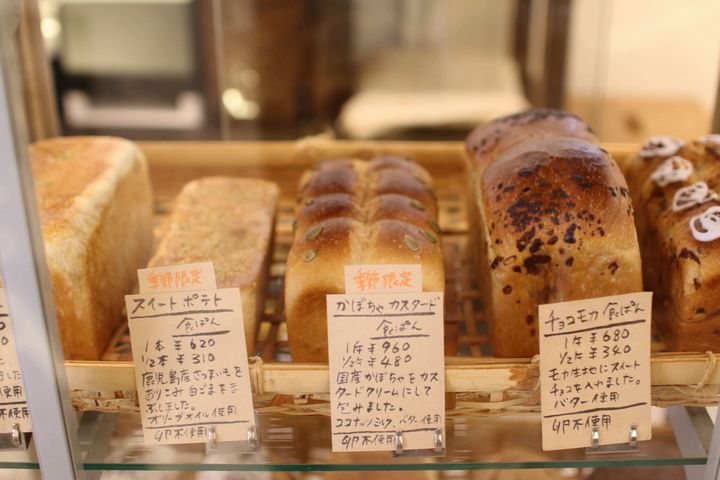 季節限定
スイートポテト
食ぱん
1本 ¥620
1/2本 ¥310
鹿児島産さつまいもを
おりこみ 白ごまをま
ぶしました。
オリーブオイル使用
卵不使用
季節限定
かぼちゃカスタード
食ぱん
1斤 ¥960
1/2斤 ¥480
国産かぼちゃをカス
タードクリームにして
包みました。
ココナッツミルク、バター使用
卵不使用
チョコモカ 食ぱん
1斤 ¥680
1/2斤 ¥340
モカ生地にスイート
チョコを入れました。
バター使用
卵不使用